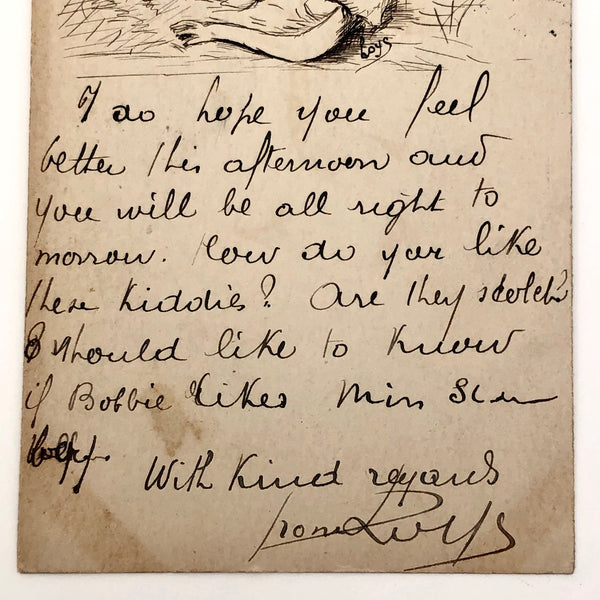 Loys
I do hope you feel
better this afternoon and
you will be all right to
morrow. How do you like
these kiddies? Are they scotch?
I should like to know
if Bobbie likes Miss
With kind regards
from Loys